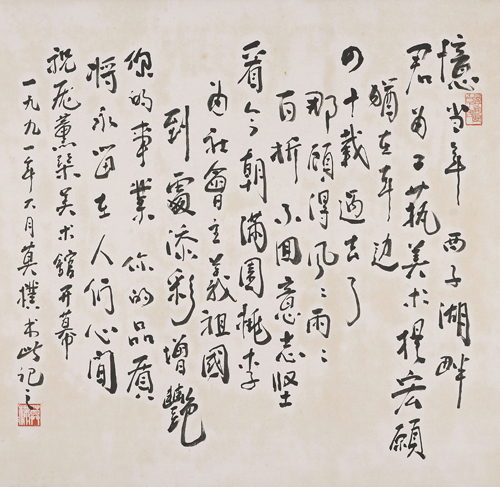 憶当年 西子湖畔
君为工藝美术提宏願
猶在耳边
四十載過去了
那顧得风々雨々
百折不回意志坚
看今朝滿園桃李
为社會主義祖國
到處添彩增艷
你的事業 你的品质
将永留在人们心间
祝庞薰琹美术館开幕
一九九一年六月莫樸书此记之